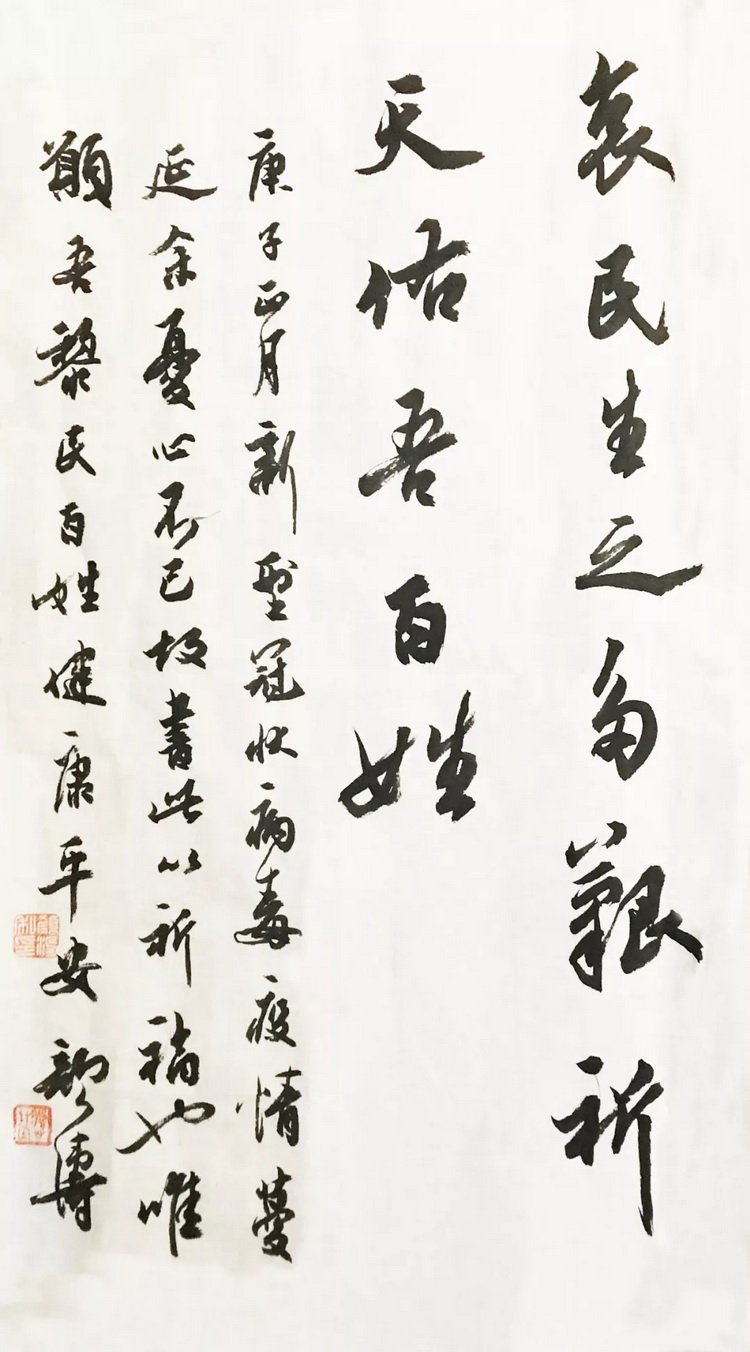 哀民生之多艱祈
天佑吾百姓
庚子正月新型冠狀病毒疫情蔓
延余憂心不已故書此以祈福也唯
願吾黎民百姓健康平安